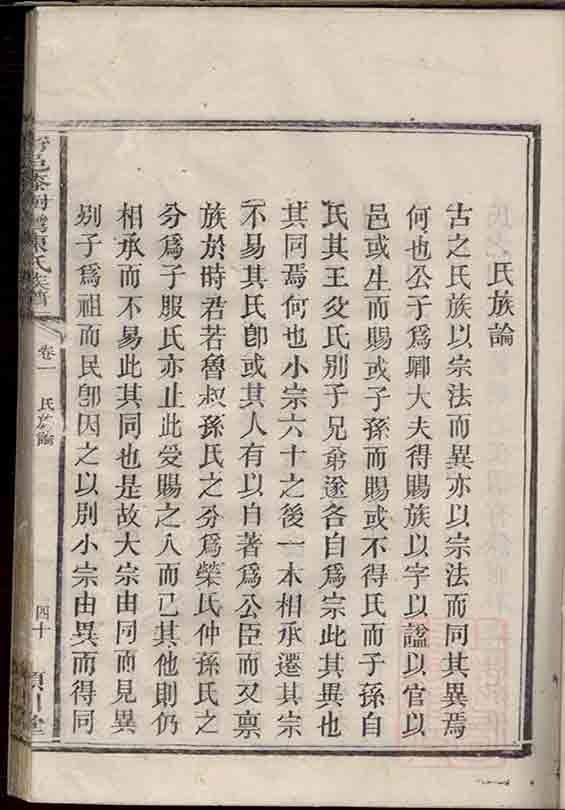 氏族論
古之氏族以宗法而異亦以宗法而同其異焉
何也公子爲卿大夫得賜族以字以諡以官以
邑或生而賜或子孫而賜或不得氏而子孫自
氏其王父氏别子兄弟遂各自爲宗此其異也
其同焉何也小宗六十之後一本相承遷其宗
不易其氏卽或其人有以自著爲公臣而又禀
族於時君若魯叔孫氏之分爲榮氏仲孫氏之
分爲子服氏亦止此受賜之人而已其他則仍
相承而不易此其同也是故大宗由同而見異
别子爲祖而民卽因之以別小宗由異而得同
陳氏族譜
卷一
氏族論
四十
潁川堂